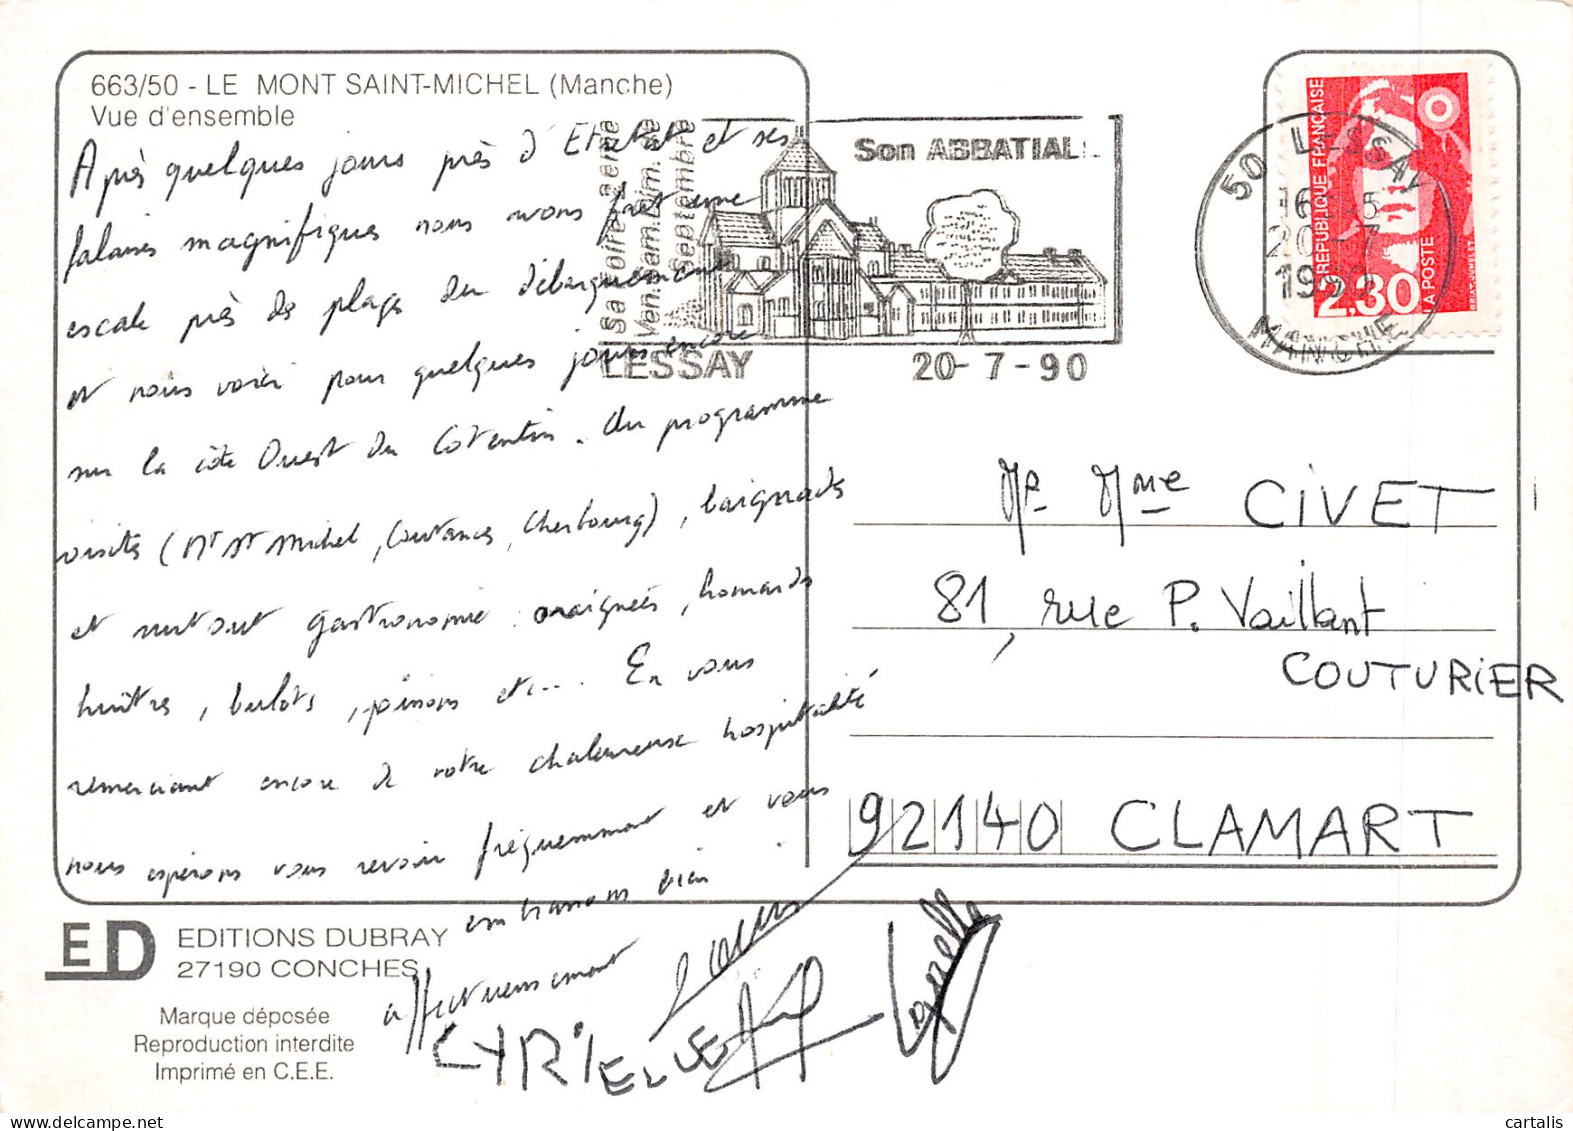 663/50 - LE MONT SAINT-MICHEL (Manche)
Vue d'ensemble
Après quelques jours près d'Etretat et ses
falaises magnifiques nous avons fait une
escale près des plages du débarquement
et nous voici pour quelques jours encore
sur la côte Ouest du Cotentin. Au programme
visites (Mt St Michel, Coutances, Cherbourg), baignades
et surtout gastronomie : araignées, homards
huîtres, bulots, poissons etc... En vous
remerciant encore de votre chaleureuse hospitalité
nous espérons vous revoir fréquemment et vous
embrassons bien
affectueusement
CYRIELLE
Sa Foire
Ven. Sam. Dim.
Septembre
Son ABBATIAL
LESSAY
20-7-90
50 LESSAY
16
20-7
1990
MANCHE
REPUBLIQUE FRANÇAISE
2,30
LA POSTE
Mr Mme CIVET
81, rue P. Vaillant
COUTURIER
92140 CLAMART
ED
EDITIONS DUBRAY
27190 CONCHES
Marque déposée
Reproduction interdite
Imprimé en C.E.E.
cartalis